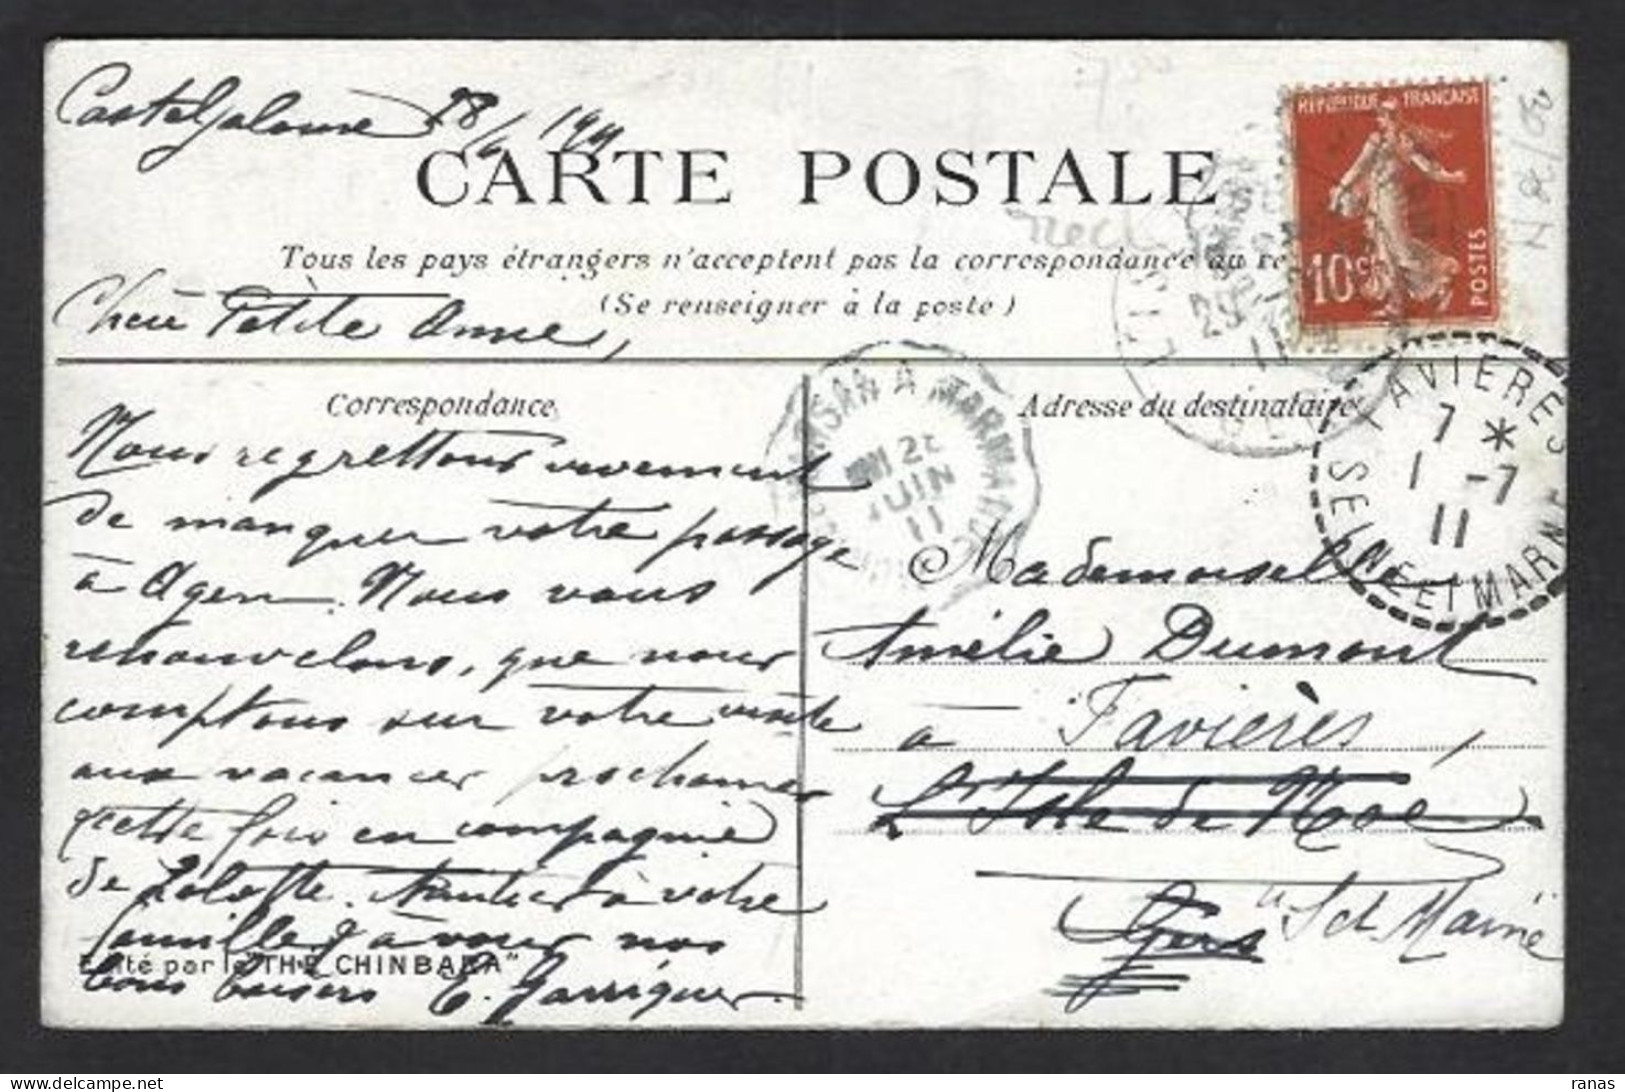 Casteljaloux 28/6 1911
CARTE POSTALE
Tous les pays étrangers n'acceptent pas la correspondance au re
(Se renseigner à la poste)
Chère Petite Amie,
RÉPUBLIQUE FRANÇAISE
10c
POSTES
Correspondance
Nous regrettons vivement
de manquer votre passage
à Agen. Nous vous
renouvelons, que nous
comptons sur votre visite
aux vacances prochaines
cette fois en compagnie
de Lolotte. Amitiés à votre
famille & à vous nos
bons baisers E. Garrigues.
Edité par le "THE CHINBARA"
MARSAN A MARMANDE
JUIN
11
Adresse du destinataire
FAVIERES
7 *
1 -7
11
SEINE ET MARNE
Mademoiselle
Amélie Dumont
à Favières,
L'Isle de Noé
Gers
Set Marne
ranas